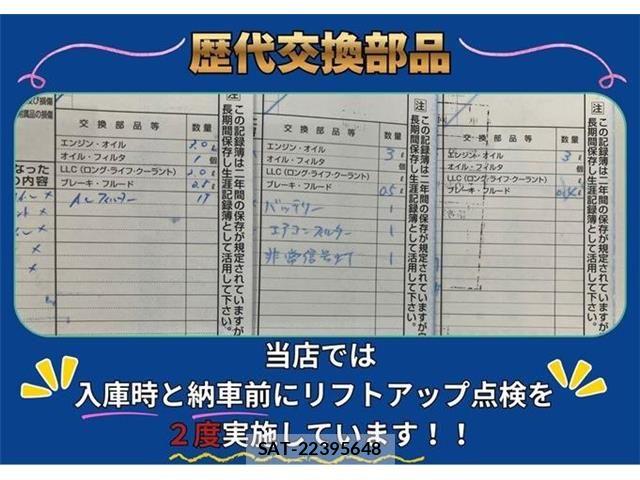 歴代交換部品
及び損傷
付属品の損傷
なった
の内容
交換部品等 数量
エンジン・オイル 3.0 ℓ
オイル・フィルタ 1 個
LLC(ロング・ライフ・クーラント) 2.0 ℓ
ブレーキ・フルード 0.5 ℓ
注
この記録簿は二年間の保存が規定されていますが
長期間保存し生涯記録簿として活用して下さい。
交換部品等 数量
エンジン・オイル 3 ℓ
オイル・フィルタ 個
LLC(ロング・ライフ・クーラント) ℓ
ブレーキ・フルード 0.5 ℓ
バッテリー 1
エアコンフィルター 1
非常信号灯 1
注
この記録簿は二年間の保存が規定されていますが
長期間保存し生涯記録簿として活用して下さい。
交換部品等 数量
エンジン・オイル 3 ℓ
オイル・フィルタ 個
LLC(ロング・ライフ・クーラント) ℓ
ブレーキ・フルード
注
この記録簿は二年間の保存が規定されていますが
長期間保存し生涯記録簿として活用して下さい。
当店では
入庫時と納車前にリフトアップ点検を
2度実施しています!!
SAT-22395648